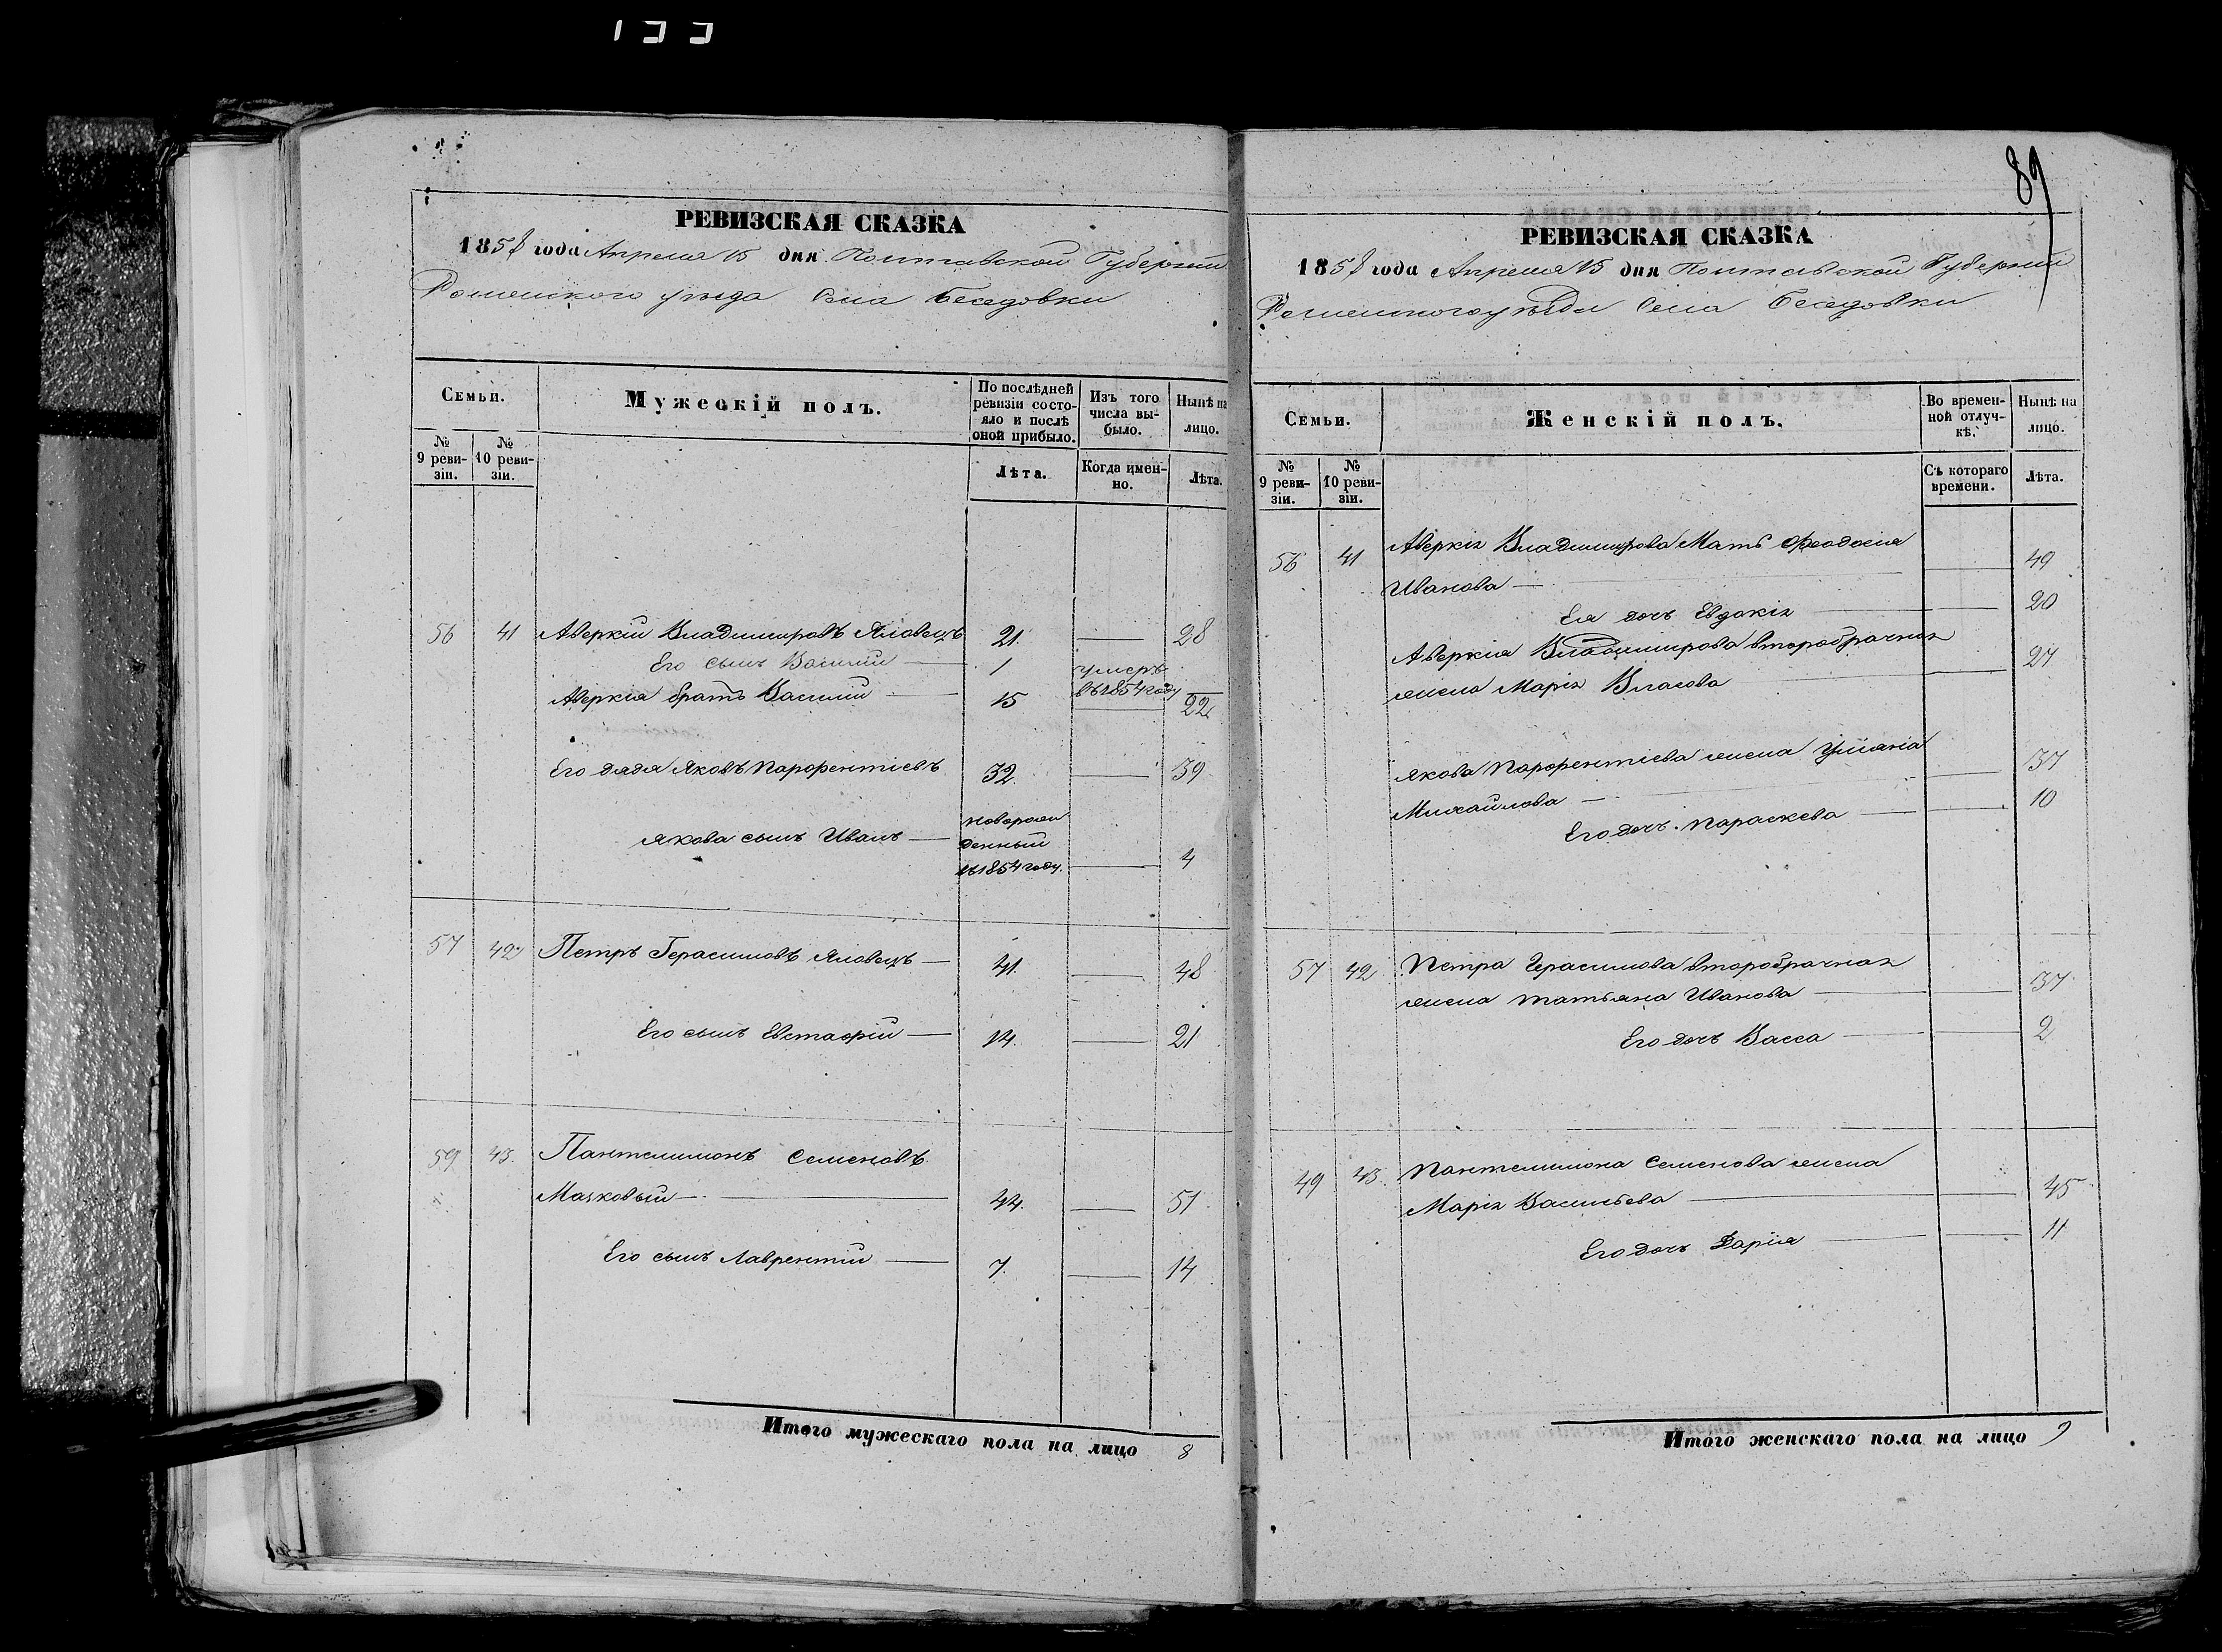 133
РЕВИЗСКАЯ СКАЗКА
1858 года Апреля 15 дня Полтавской Губернии
Роменского уезда Села Беседовки
Семьи.
Мужескій полъ.
По послѣдней ревизіи состо-
яло и послѣ оной прибыло.
Изъ того числа вы-
было.
Нынѣ на лицо.
№ 9 реви-
зіи.
№ 10 реви-
зіи.
Лѣта.
Когда имен-
но.
Лѣта.
56 41 Аверкій Владимировъ Яловецъ 21. 28
Его сынъ Василій 1 умеръ
въ 1854 году
Аверкія братъ Василий 15 22
Его дядя Яковъ Парфентіевъ 32. 39
Якова сынъ Иванъ новорож
денный
въ 1854 году. 4
57 42 Петръ Герасимовъ Яловецъ 41. 48
Его сынъ Евстафій 14. 21
59 43. Пантелимонъ Семеновъ
Маяковый 44. 51
Его сынъ Лаврентій 7. 14
Итого мужескаго пола на лицо 8
89
РЕВИЗСКАЯ СКАЗКА
1858 года Апреля 15 дня Полтавской Губернии
Роменского уѣзда Села Беседовки
Семьи.
Женскій полъ.
Во времен-
ной отлуч-
кѣ.
Нынѣ на лицо.
№ 9 реви-
зіи.
№ 10 реви-
зіи.
Съ котораго времени.
Лѣта.
56 41 Аверкія Владимирова Мать Феодосія
Иванова 49
Ея дочь Евдокія 20
Аверкія Владимирова второбрачная
жена Марія Власова 27
Якова Парфентіева жена Уліянія
Михайлова 37
Его дочь Параскева 10
57 42 Петра Герасимова второбрачная
жена Татьяна Иванова 37
Его дочь Васса 2
49 43. Пантелимона Семенова жена
Марія Васильева 45
Его дочь Дарія 11
Итого женскаго пола на лицо 9